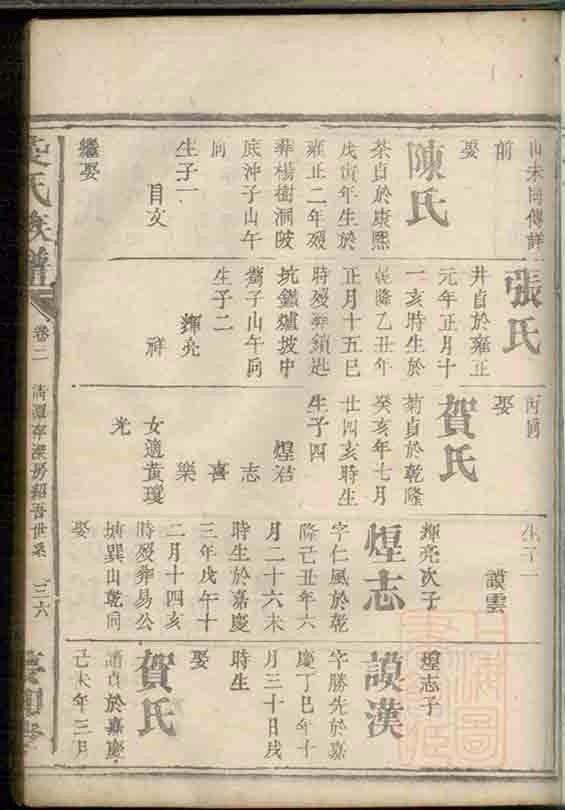 山未同傳詳
前
娶
陳氏
茶貞於康熙
戊寅年生於
雍正二年歿
葬楊樹洞陂
底沖子山午
向
生子一
目文
繼娶
張氏
井貞於雍正
元年正月十
一亥時生於
乾隆乙丑年
正月十五巳
時歿葬鎖匙
坑鐵爐坡中
嘴子山午向
生子二
輝亮
祥
丙向
娶
賀氏
菊貞於乾隆
癸亥年七月
廿四亥時生
生子四
煌君
志
喜
樂
女適黃瓊
光
生子一
謨雲
輝亮次子
煌志
字仁風於乾
隆己丑年六
月二十六未
時生於嘉慶
三年戊午十
二月十四亥
時歿葬易公
塘巽山乾向
娶
煌志子
謨漢
字勝先於嘉
慶丁巳年十
月三十日戌
時生
娶
賀氏
貞於嘉慶
己未年三月
氏族譜
卷二
世系
三六